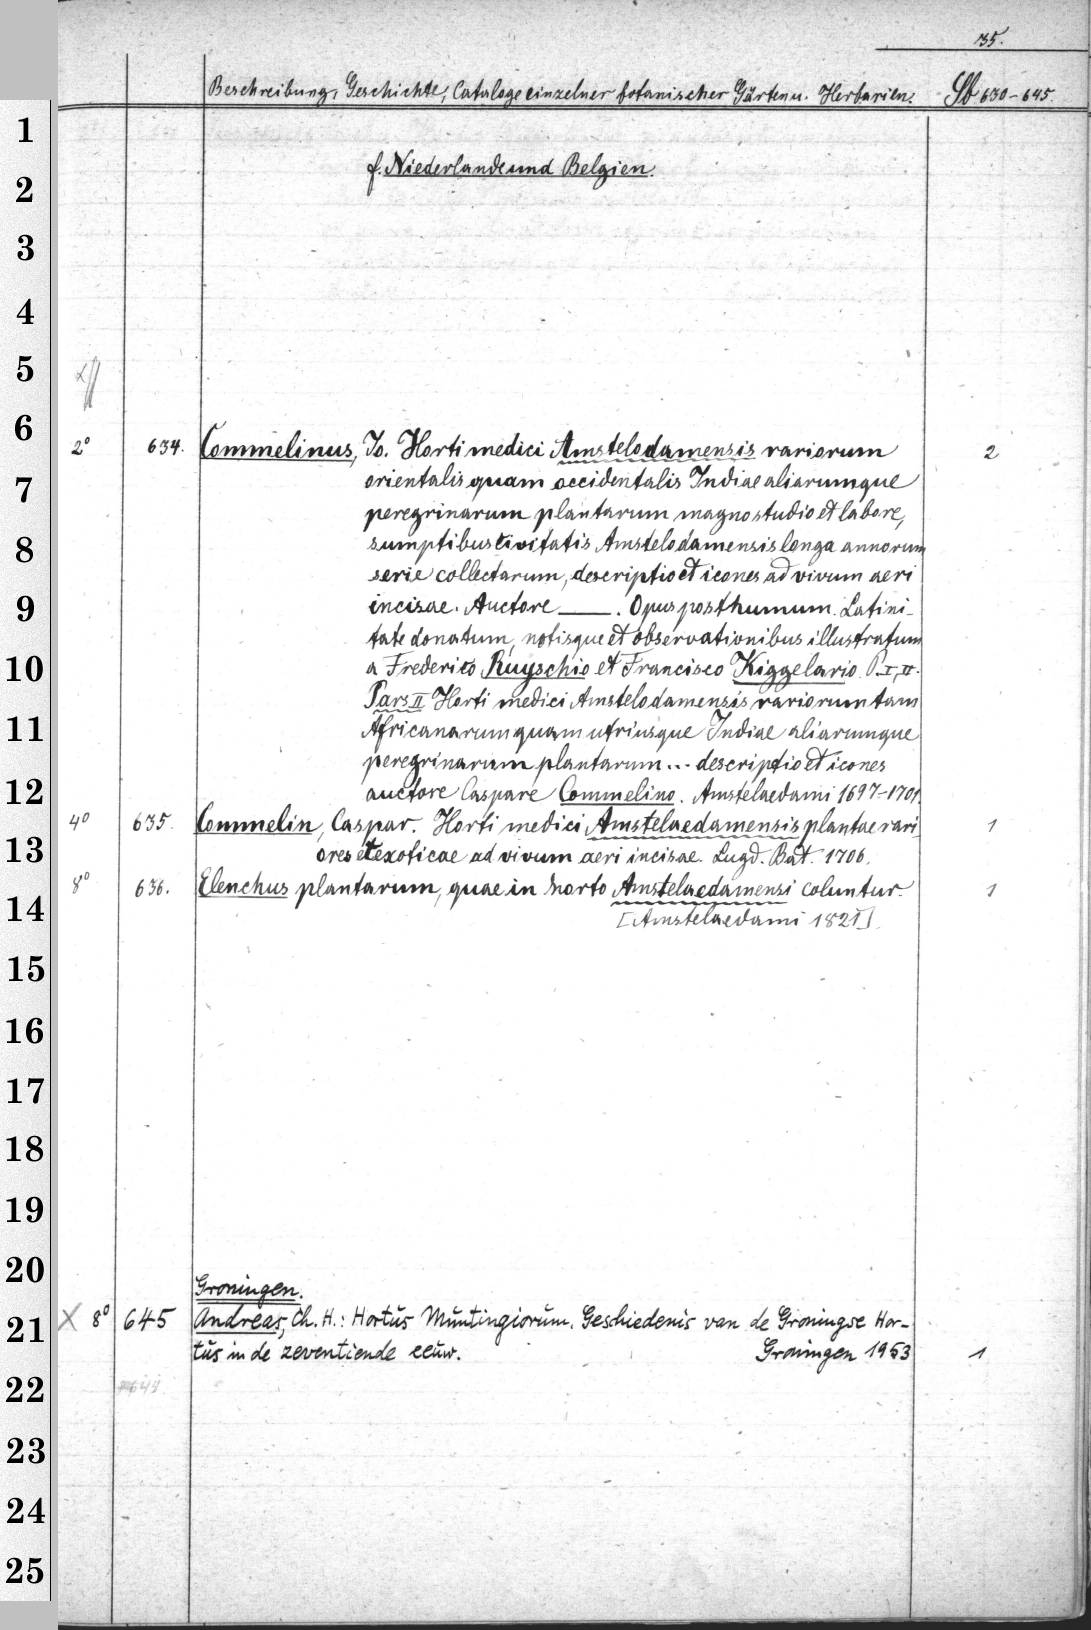 35.
Beschreibung, Geschichte, Cataloge einzelner botanischer Gärten u. Herbarien. Sb 630-645.
1
f. Niederlande und Belgien.
2
3
4
5
6
2° 634. Commelinus, Jo. Horti medici Amstelodamensis rariorum 2
7 orientalis quam occidentalis Indiae aliarumque
peregrinarum plantarum magno studio et labore,
8 sumptibus civitatis Amstelodamensis longa annorum
serie collectarum, descriptio et icones ad vivum aeri
9 incisae. Auctore ——. Opus posthumum. Latini-
tate donatum, notisque et observationibus illustratum
10 a Frederico Ruyschio et Francisco Kiggelario P. I, II.
Pars II Horti medici Amstelodamensis rariorum tam
11 Africanarum quam utriusque Indiae aliarumque
peregrinarum plantarum ... descriptio et icones
12 auctore Caspare Commelino. Amstelaedami 1697-1701.
4° 635. Commelin, Caspar. Horti medici Amstelaedamensis plantae rari 1
13 ores et exoticae ad vivum aeri incisae. Lugd. Bat. 1706.
8° 636. Elenchus plantarum, quae in horto Amstelaedamensi coluntur. 1
14 [Amstelaedami 1821]
15
16
17
18
19
20
Groningen.
21 X 8° 645 Andreas, Ch. H.: Hortus Muntingiorum. Geschiedenis van de Groningse Hor-
tus in de zeventiende eeuw. Groningen 1953 1
22
23
24
25